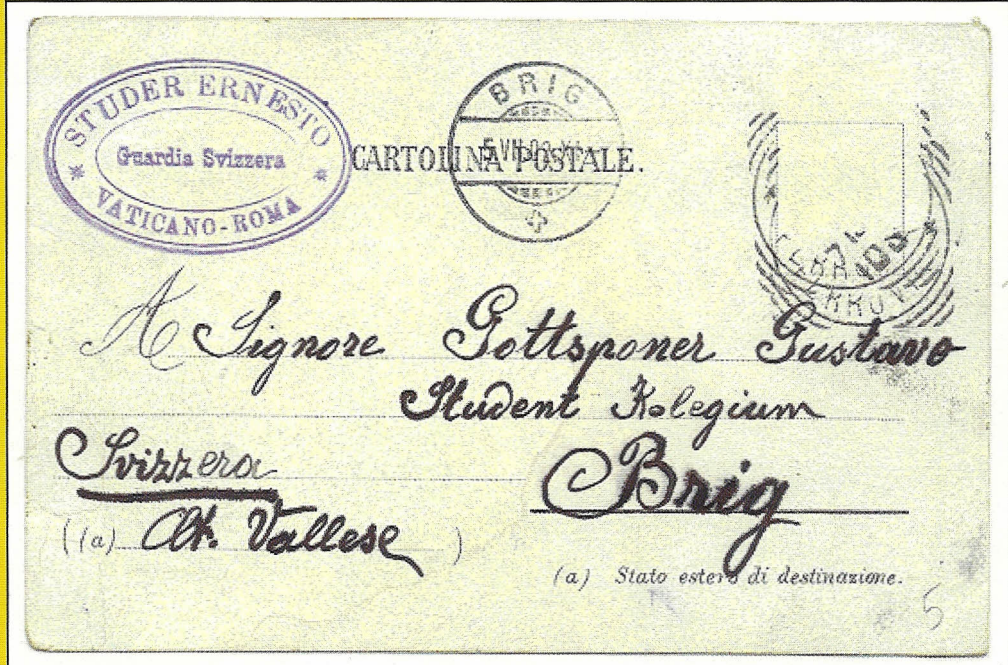 STUDER ERNESTO
Guardia Svizzera
VATICANO-ROMA
BRIG
CARTOLINA POSTALE.
A Signore Gottsponer Gustavo
Student Kolegium
Svizzera
Brig
((a) Ct. Vallese )
(a) Stato estero di destinazione.
5